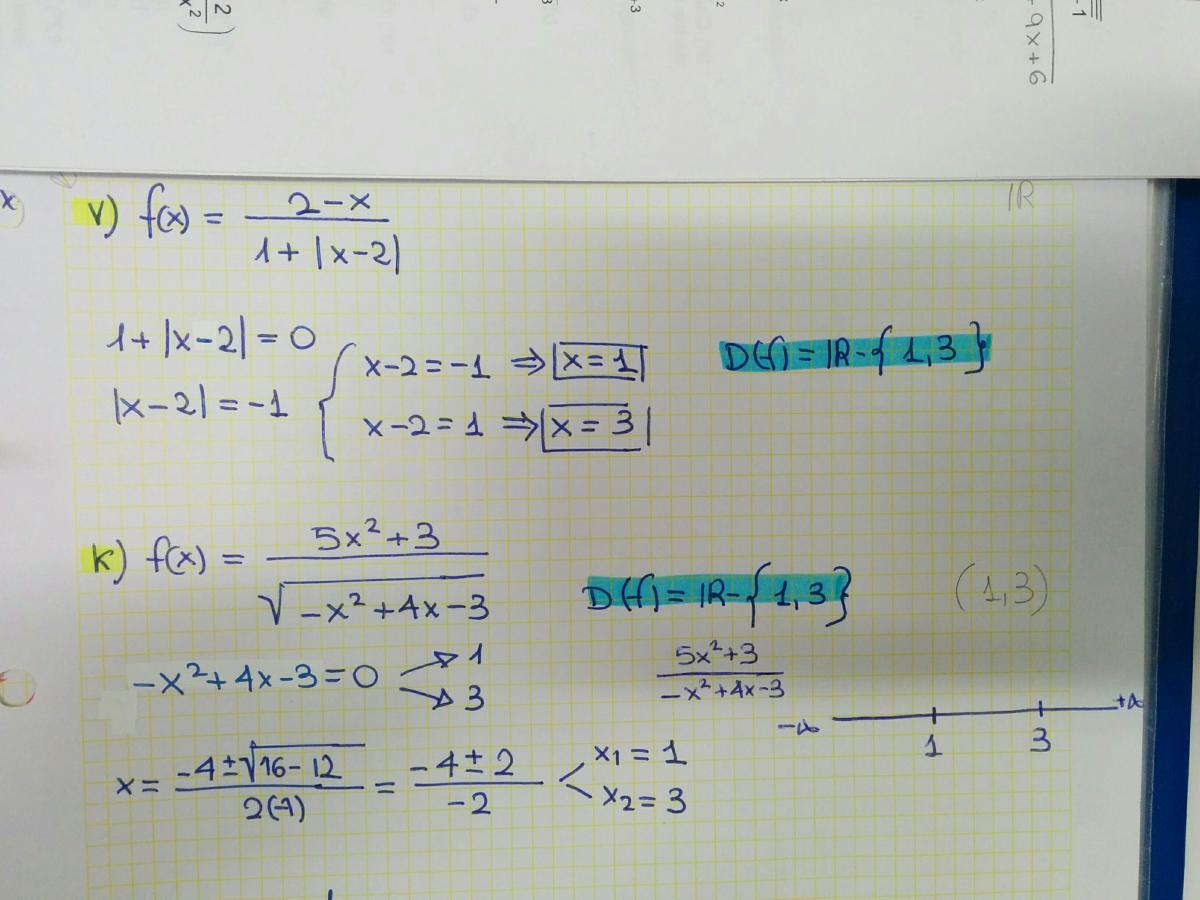 2
x²)
-1
9x+6
+3
2
x)
v) f(x) = (2-x)/(1+|x-2|)
IR
1+|x-2| = 0
|x-2| = -1
x-2 = -1 ⇒ x = 1
x-2 = 1 ⇒ x = 3
D(f) = IR-{1,3}
k) f(x) = (5x²+3)/√(-x²+4x-3)
D(f) = IR-{1,3}
(1,3)
-x²+4x-3 = 0
1
3
(5x²+3)/(-x²+4x-3)
-∞ 1 3 +∞
x = (-4±√(16-12))/(2(-1)) = (-4±2)/(-2)
x₁ = 1
x₂ = 3